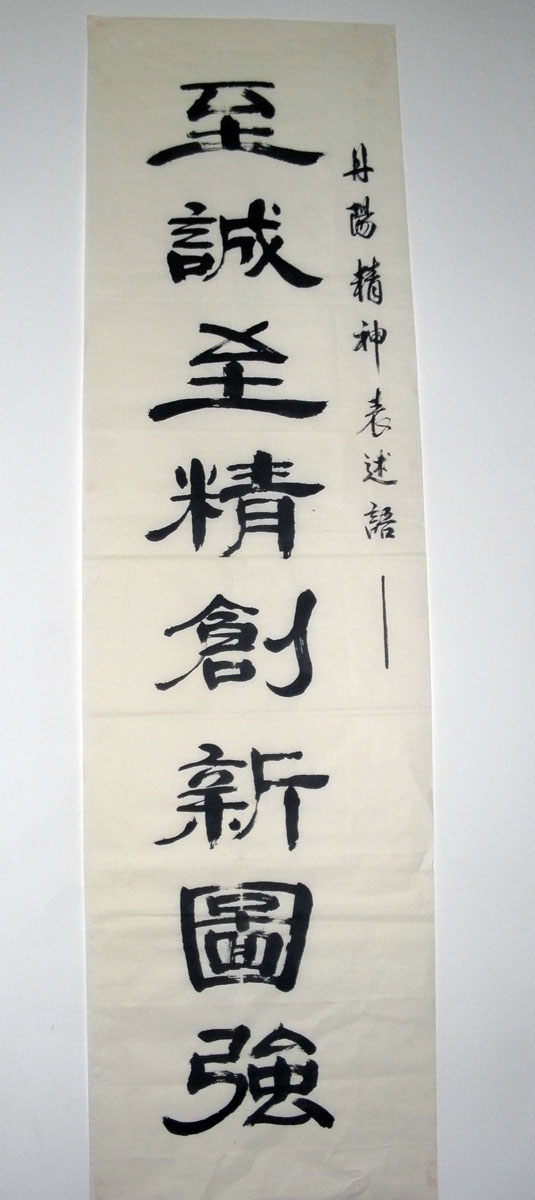 丹陽精神表述語——
至誠至精創新圖強